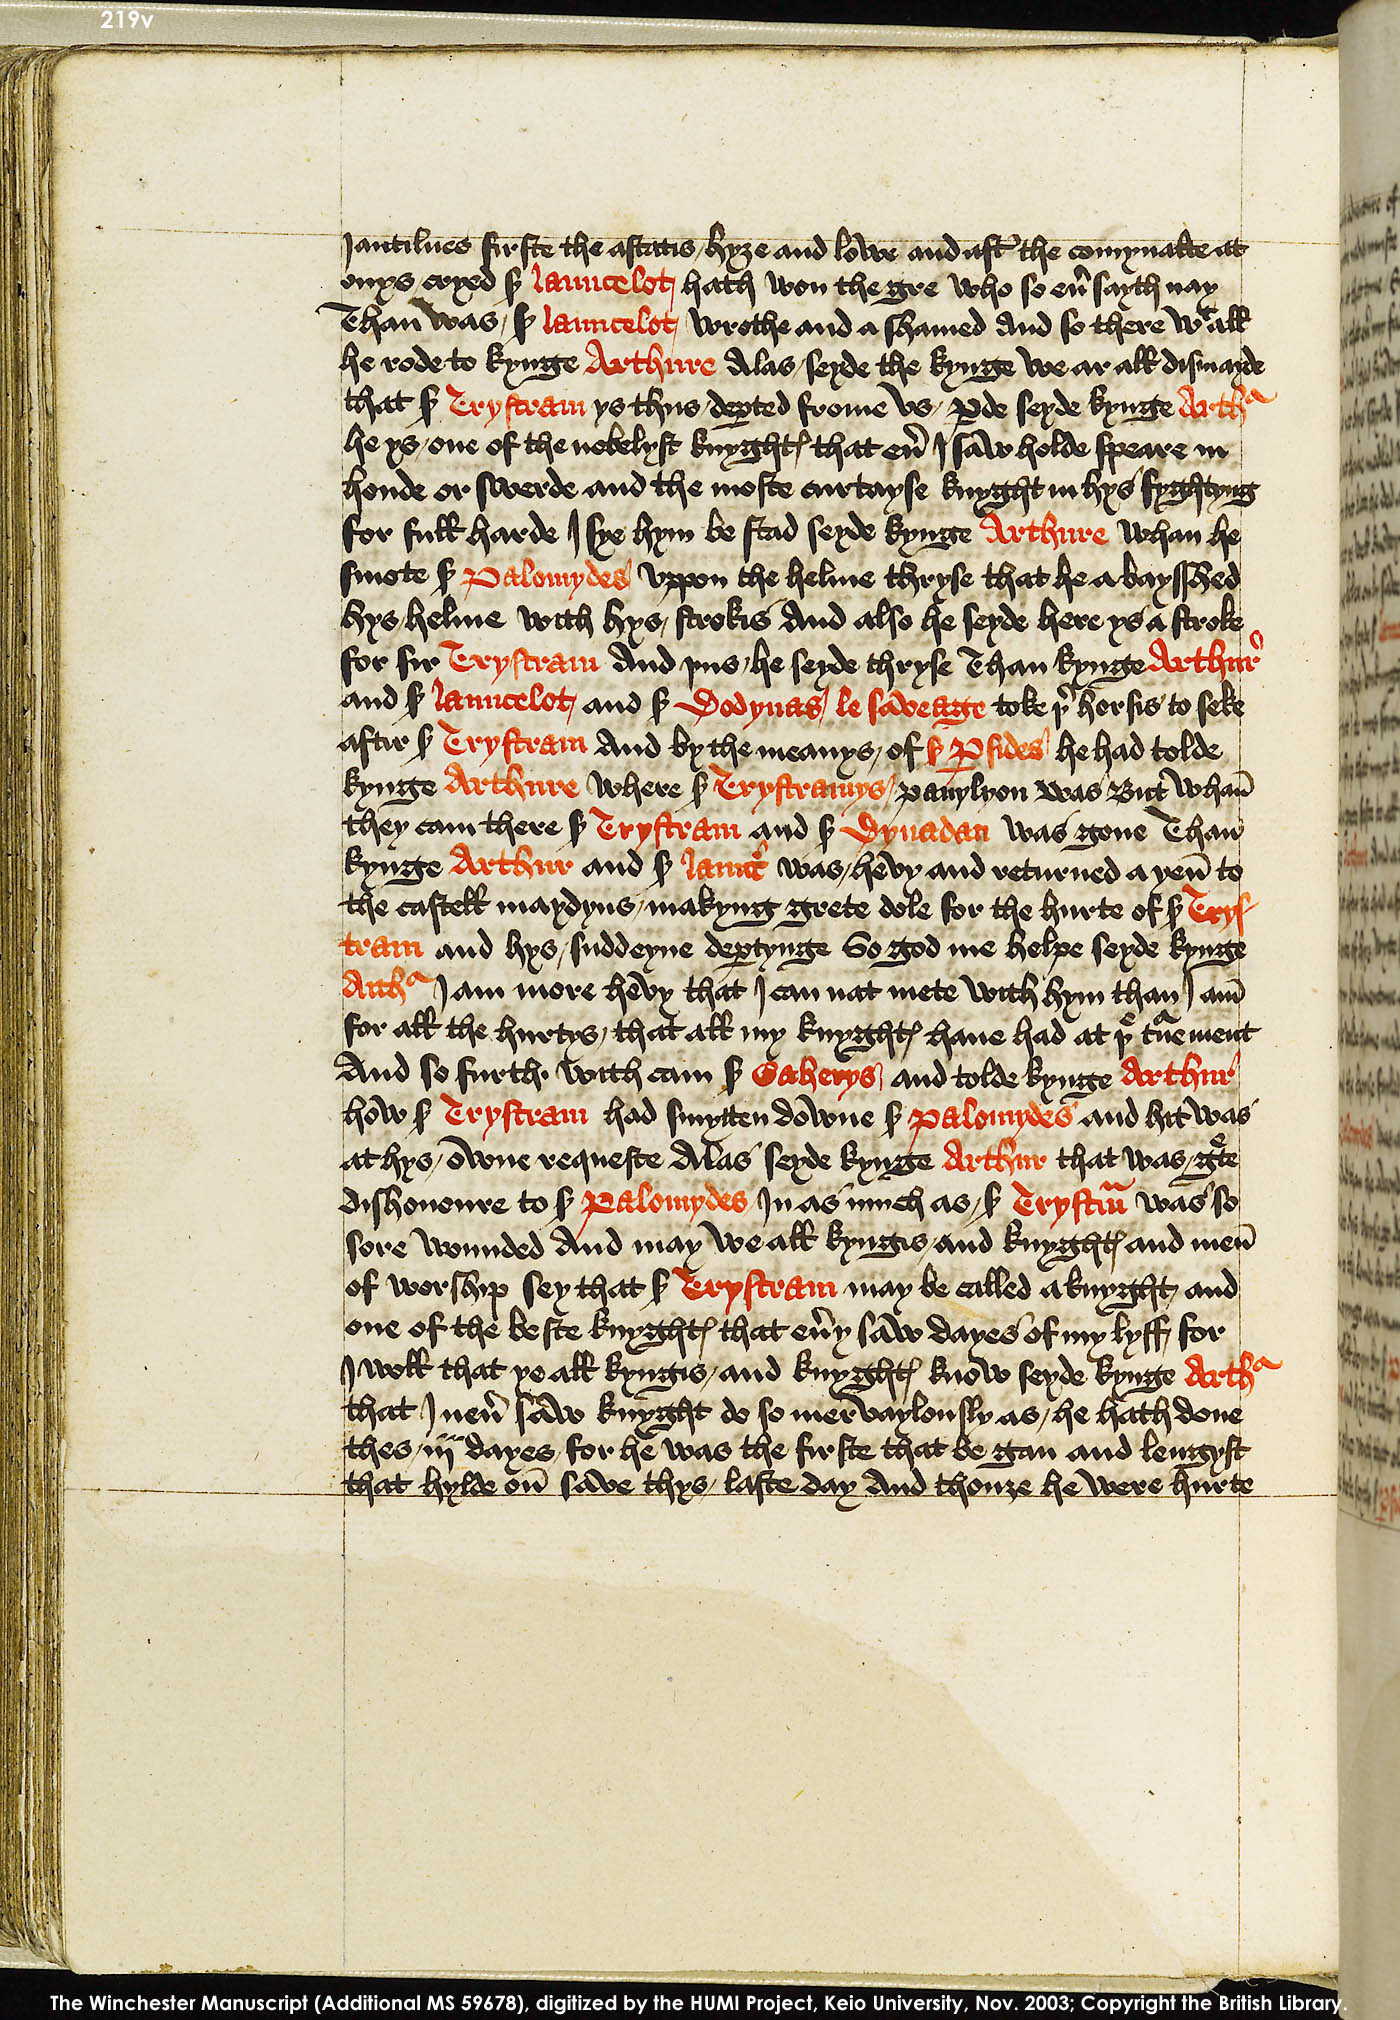 219v
Jantilnes firste the astatis hyȝe and lowe and aft̉ the comynalte at
onys cryed ẜ launcelot hath won the gre who so eủ sayth nay
Than was ẜ launcelot wrothe and a shamed And so there wt all
he rode to kynge Arthure Alas seyde the kynge we ar all dismayde
that ẜ Trystram ys thus deꝑted frome vs ꝑde seyde kynge Artha
he ys one of the nobelyst knyghtꝭ that eủ I saw holde speare in
honde or swerde and the moste curtayse knyght in hys fyghtyng
for full harde I sye hym be stad seyde kynge Arthure whan he
smote ẜ Palomydes vppon the helme thryse that he a baysshed
hys helme with hys strokis And also he seyde here ys a stroke
for sir Trystram And þus he seyde thryse Than kynge Arthur̉
and ẜ launcelot and ẜ Dodynas le saveage toke þr horsis to seke
aftir ẜ Trystram And by the meanys of ẜ ꝑsides he had tolde
kynge Arthure where ẜ Trystramys pavylyon was But whan̄
they cam there ẜ Trystram and ẜ Dynadan was gone Than
kynge Arthur and ẜ launc̉ was hevy and returned a yen̄ to
the castell maydyns makyng grete dole for the hurte of ẜ Trys
tram and hys suddeyne deꝑtynge So god me helpe seyde kynge
Artha I am more hevy that I can nat mete with hym than I am̄
for all the hurtys that all my knyghtꝭ haue had at þe tᵃnement
And so furth with cam ẜ Gaherys and tolde kynge Arthur
how ẜ Trystram had smytten downe ẜ palomydes and hit was
at hys owne requeste Alas seyde kynge Arthur that was gᵉte
dishonoure to ẜ Palomydes In as much as ẜ Trystrᵃm was so
sore wounded And may we all kyngis and knyghtꝭ and men̄
of worship sey that ẜ Trystram may be called a knyght and
one of the beste knyghtꝭ that eủ y saw dayes of my lyff for
I woll that ye all kyngis and knyghtꝭ know seyde kynge Artha
that I neủ saw knyght do so mervaylously as he hath done
thes iij dayes for he was the firste that be gan and lengyst
that hylde on̄ save thys laste day And thouȝe he were hurte
The Winchester Manuscript (Additional MS 59678), digitized by the HUMI Project, Keio University, Nov. 2003; Copyright the British Library.